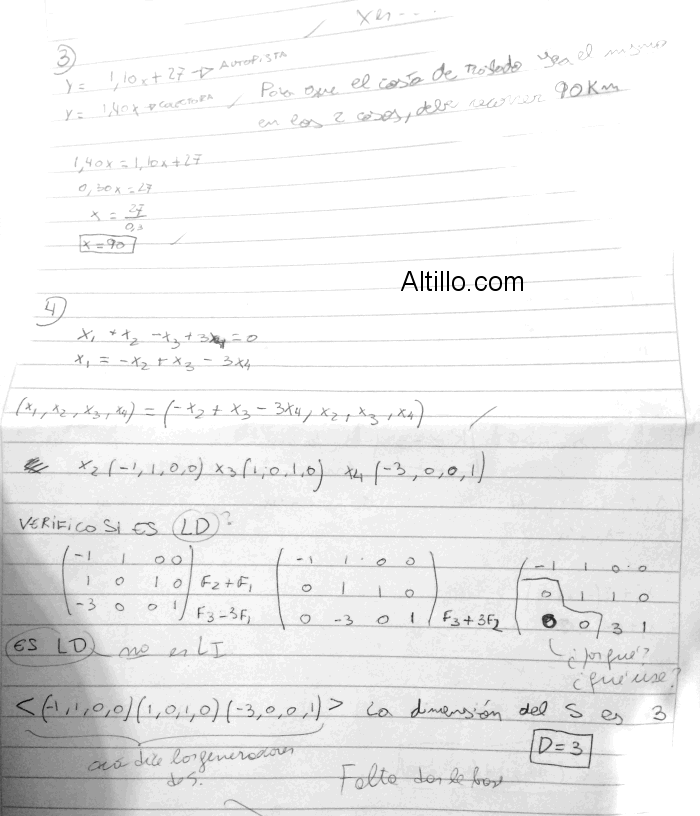 3
y = 1,10x + 27 → AUTOPISTA
y = 1,40x → COLECTORA
Para que el costo de traslado sea el mismo
en los 2 casos, debe recorrer 90 Km
1,40x = 1,10x + 27
0,30x = 27
x = 27/0,3
x = 90
Altillo.com
4
x1 + x2 - x3 + 3x4 = 0
x1 = -x2 + x3 - 3x4
(x1, x2, x3, x4) = (-x2 + x3 - 3x4, x2, x3, x4)
x2 (-1, 1, 0, 0) x3 (1, 0, 1, 0) x4 (-3, 0, 0, 1)
VERIFICO SI ES LD ?
-1 1 0 0 -1 1 0 0 -1 1 0 0
1 0 1 0 F2+F1 0 1 1 0 0 1 1 0
-3 0 0 1 F3-3F1 0 -3 0 1 F3+3F2 0 0 3 1
ES LD no es LI
¿por qué?
¿qué use?
<(-1, 1, 0, 0) (1, 0, 1, 0) (-3, 0, 0, 1)> La dimensión del S es 3
D = 3
acá dice los generadores
de S.
Falta dar la base